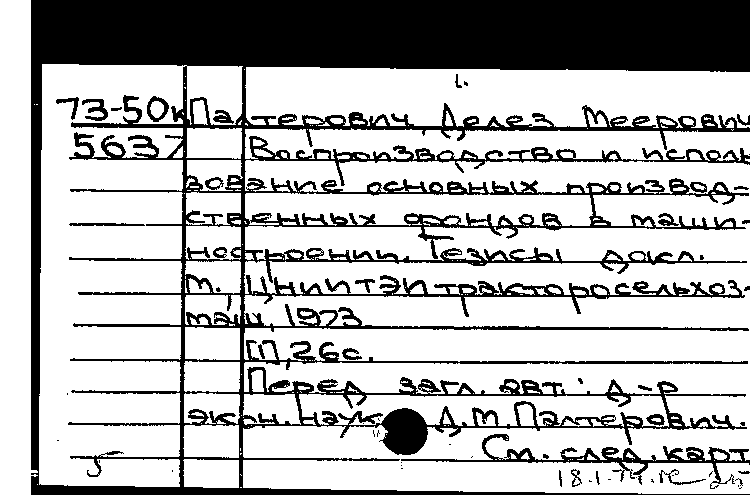 1.
73-50к Палтерович, Делез Меерович
5637 Воспроизводство и исполь
зование основных производ-
ственных фондов в маши-
ностроении. Тезисы докл.
М., ЦНИИТЭИтракторосельхоз-
маш, 1973
[1], 26с.
Перед загл. авт.: д-р
экон. наук Д.М.Палтерович.
См. след. карт
5 18.1.74.